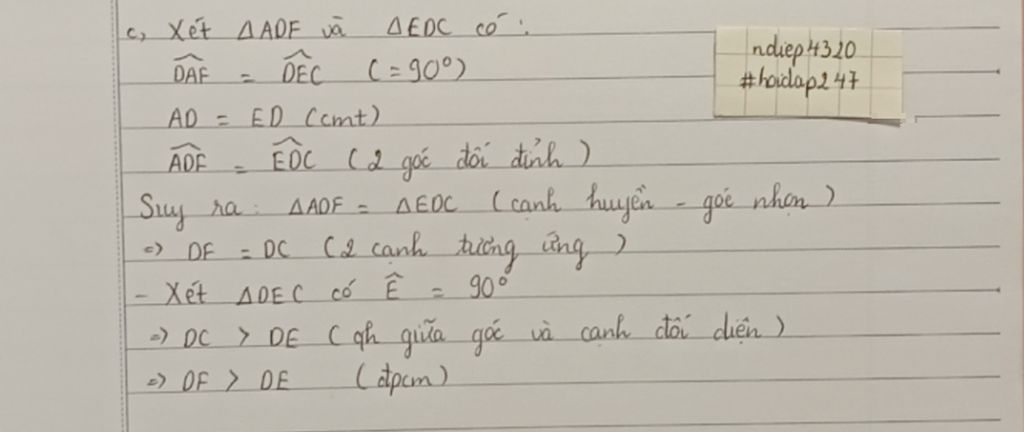 c, Xét ΔADF và ΔEDC có:
ndiep4320
#hoidap247
\widehat{DAF} = \widehat{DEC} (=90°)
AD = ED (cmt)
\widehat{ADF} = \widehat{EDC} (2 góc đối đỉnh)
Suy ra: ΔADF = ΔEDC (cạnh huyền - góc nhọn)
=> DF = DC (2 cạnh tương ứng)
- Xét ΔDEC có Ê = 90°
=> DC > DE (qh giữa góc và cạnh đối diện)
=> DF > DE (đpcm)